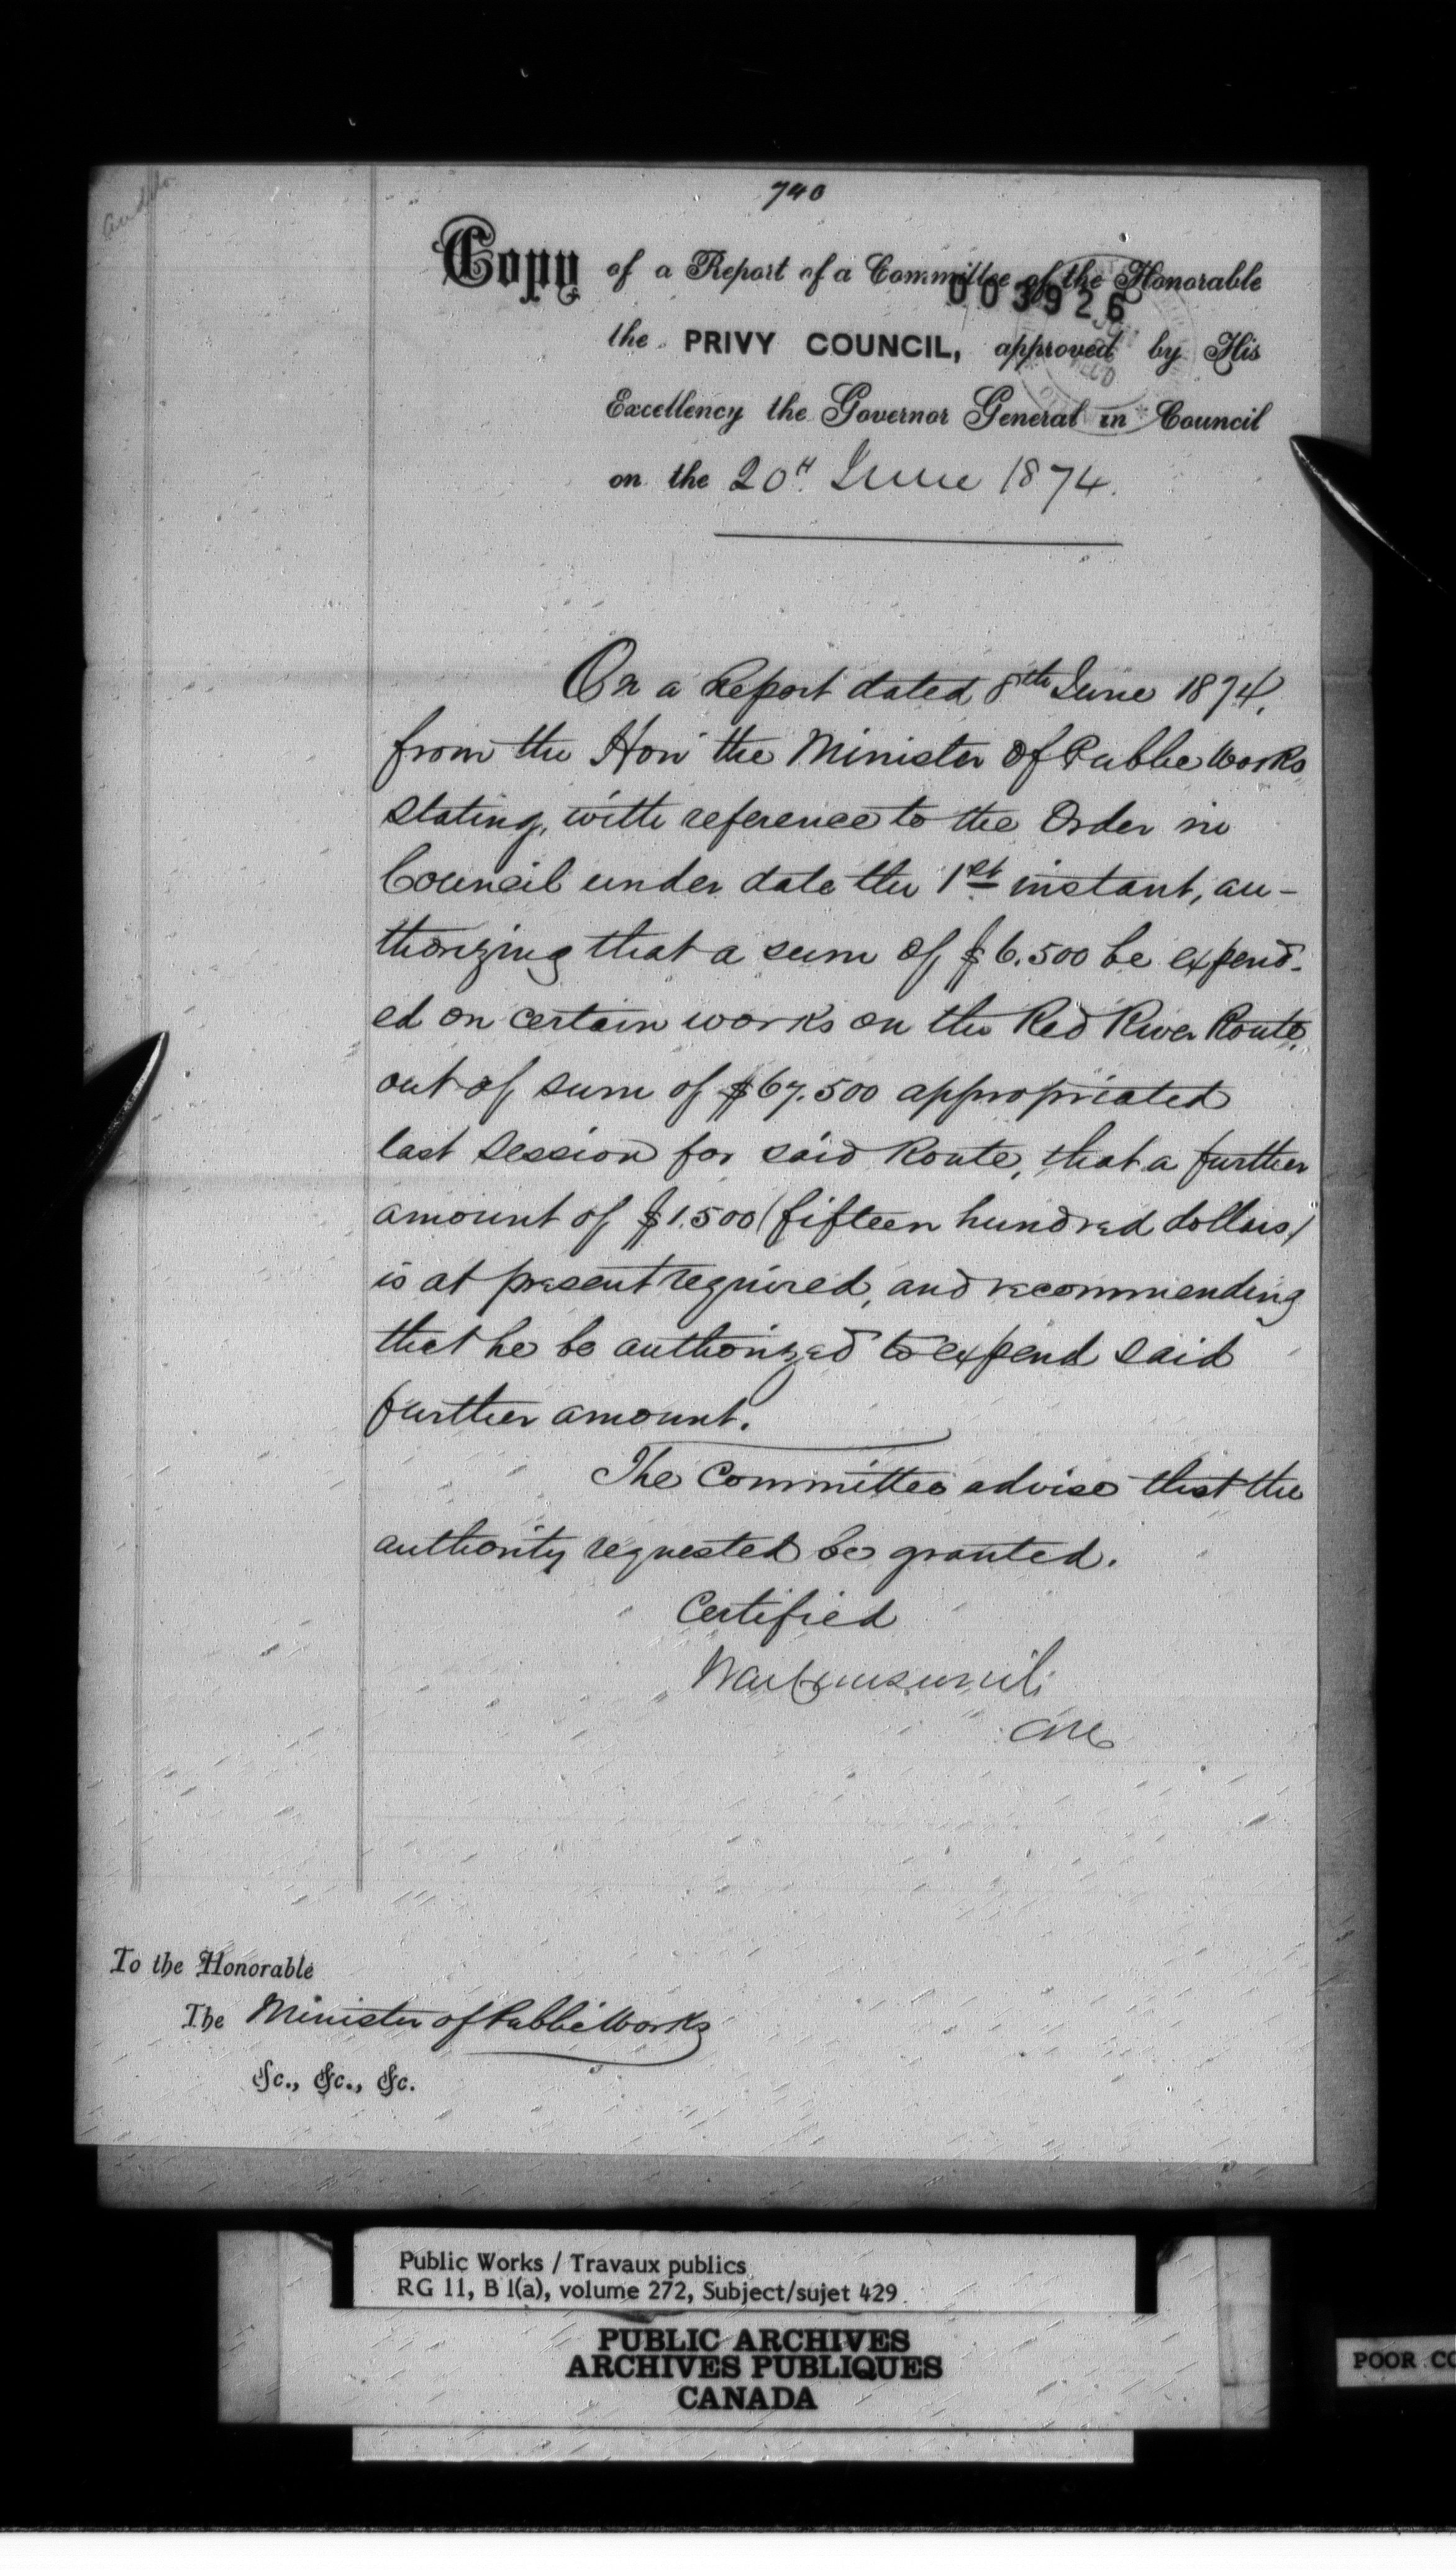 740
Copy of a Report of a Committee of the Honorable
003926
the PRIVY COUNCIL, approved by His
REC'D
Excellency the Governor General in Council
on the 20th June 1874.
On a Report dated 8th June 1874,
from the Hon the Minister of Public Works
stating, with reference to the Order in
Council under date the 1st instant, au-
thorizing that a sum of $6.500 be expend-
ed on certain works on the Red River Route,
out of sum of $67.500 appropriated
last Session for said Route, that a further
amount of $1.500 (fifteen hundred dollars)
is at present required, and recommending
that he be authorized to expend said
further amount.
The Committee advise that the
authority requested be granted.
Certified
To the Honorable
The Minister of Public Works
&c., &c., &c.
Public Works / Travaux publics
RG 11, B 1(a), volume 272, Subject/sujet 429
PUBLIC ARCHIVES
ARCHIVES PUBLIQUES
CANADA
POOR CO